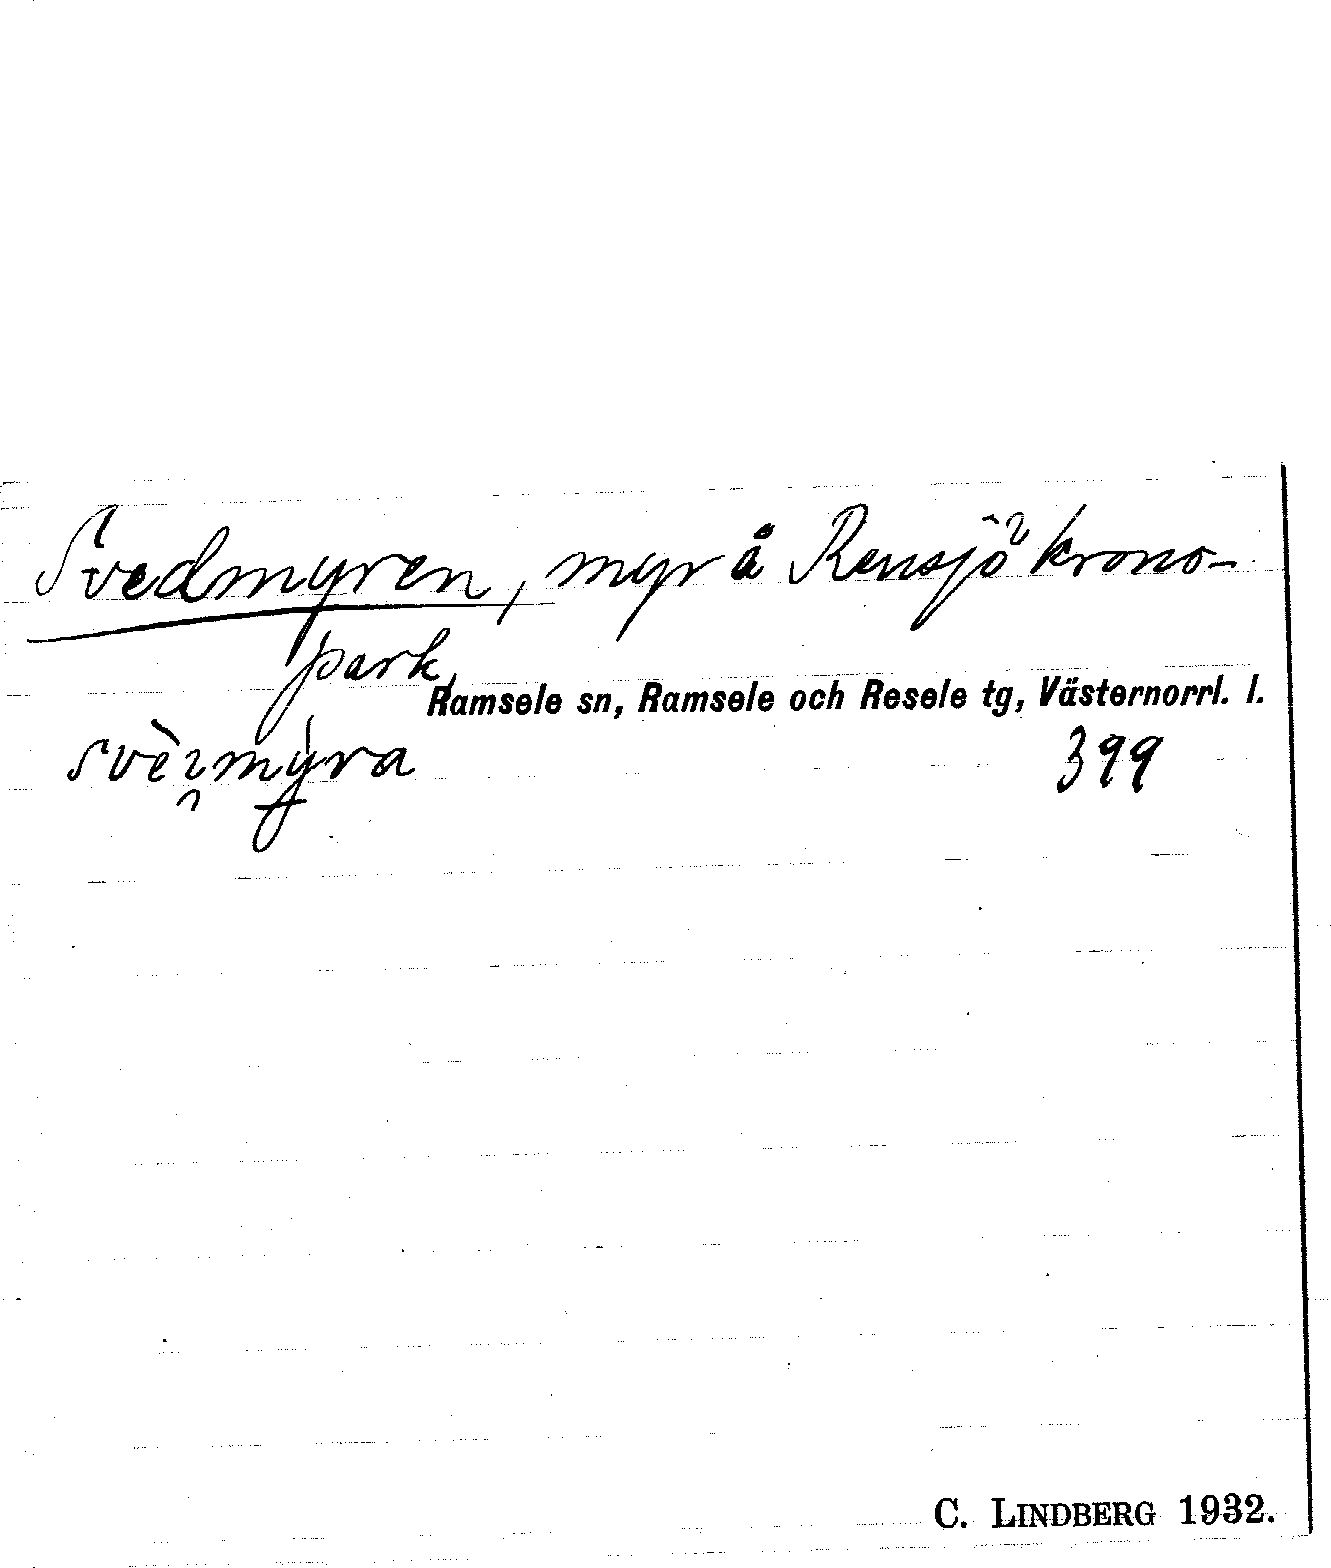 Svedmyren, myr å Rensjö krono-
park,
Ramsele sn, Ramsele och Resele tg, Västernorrl. l.
399
C. LINDBERG 1932.